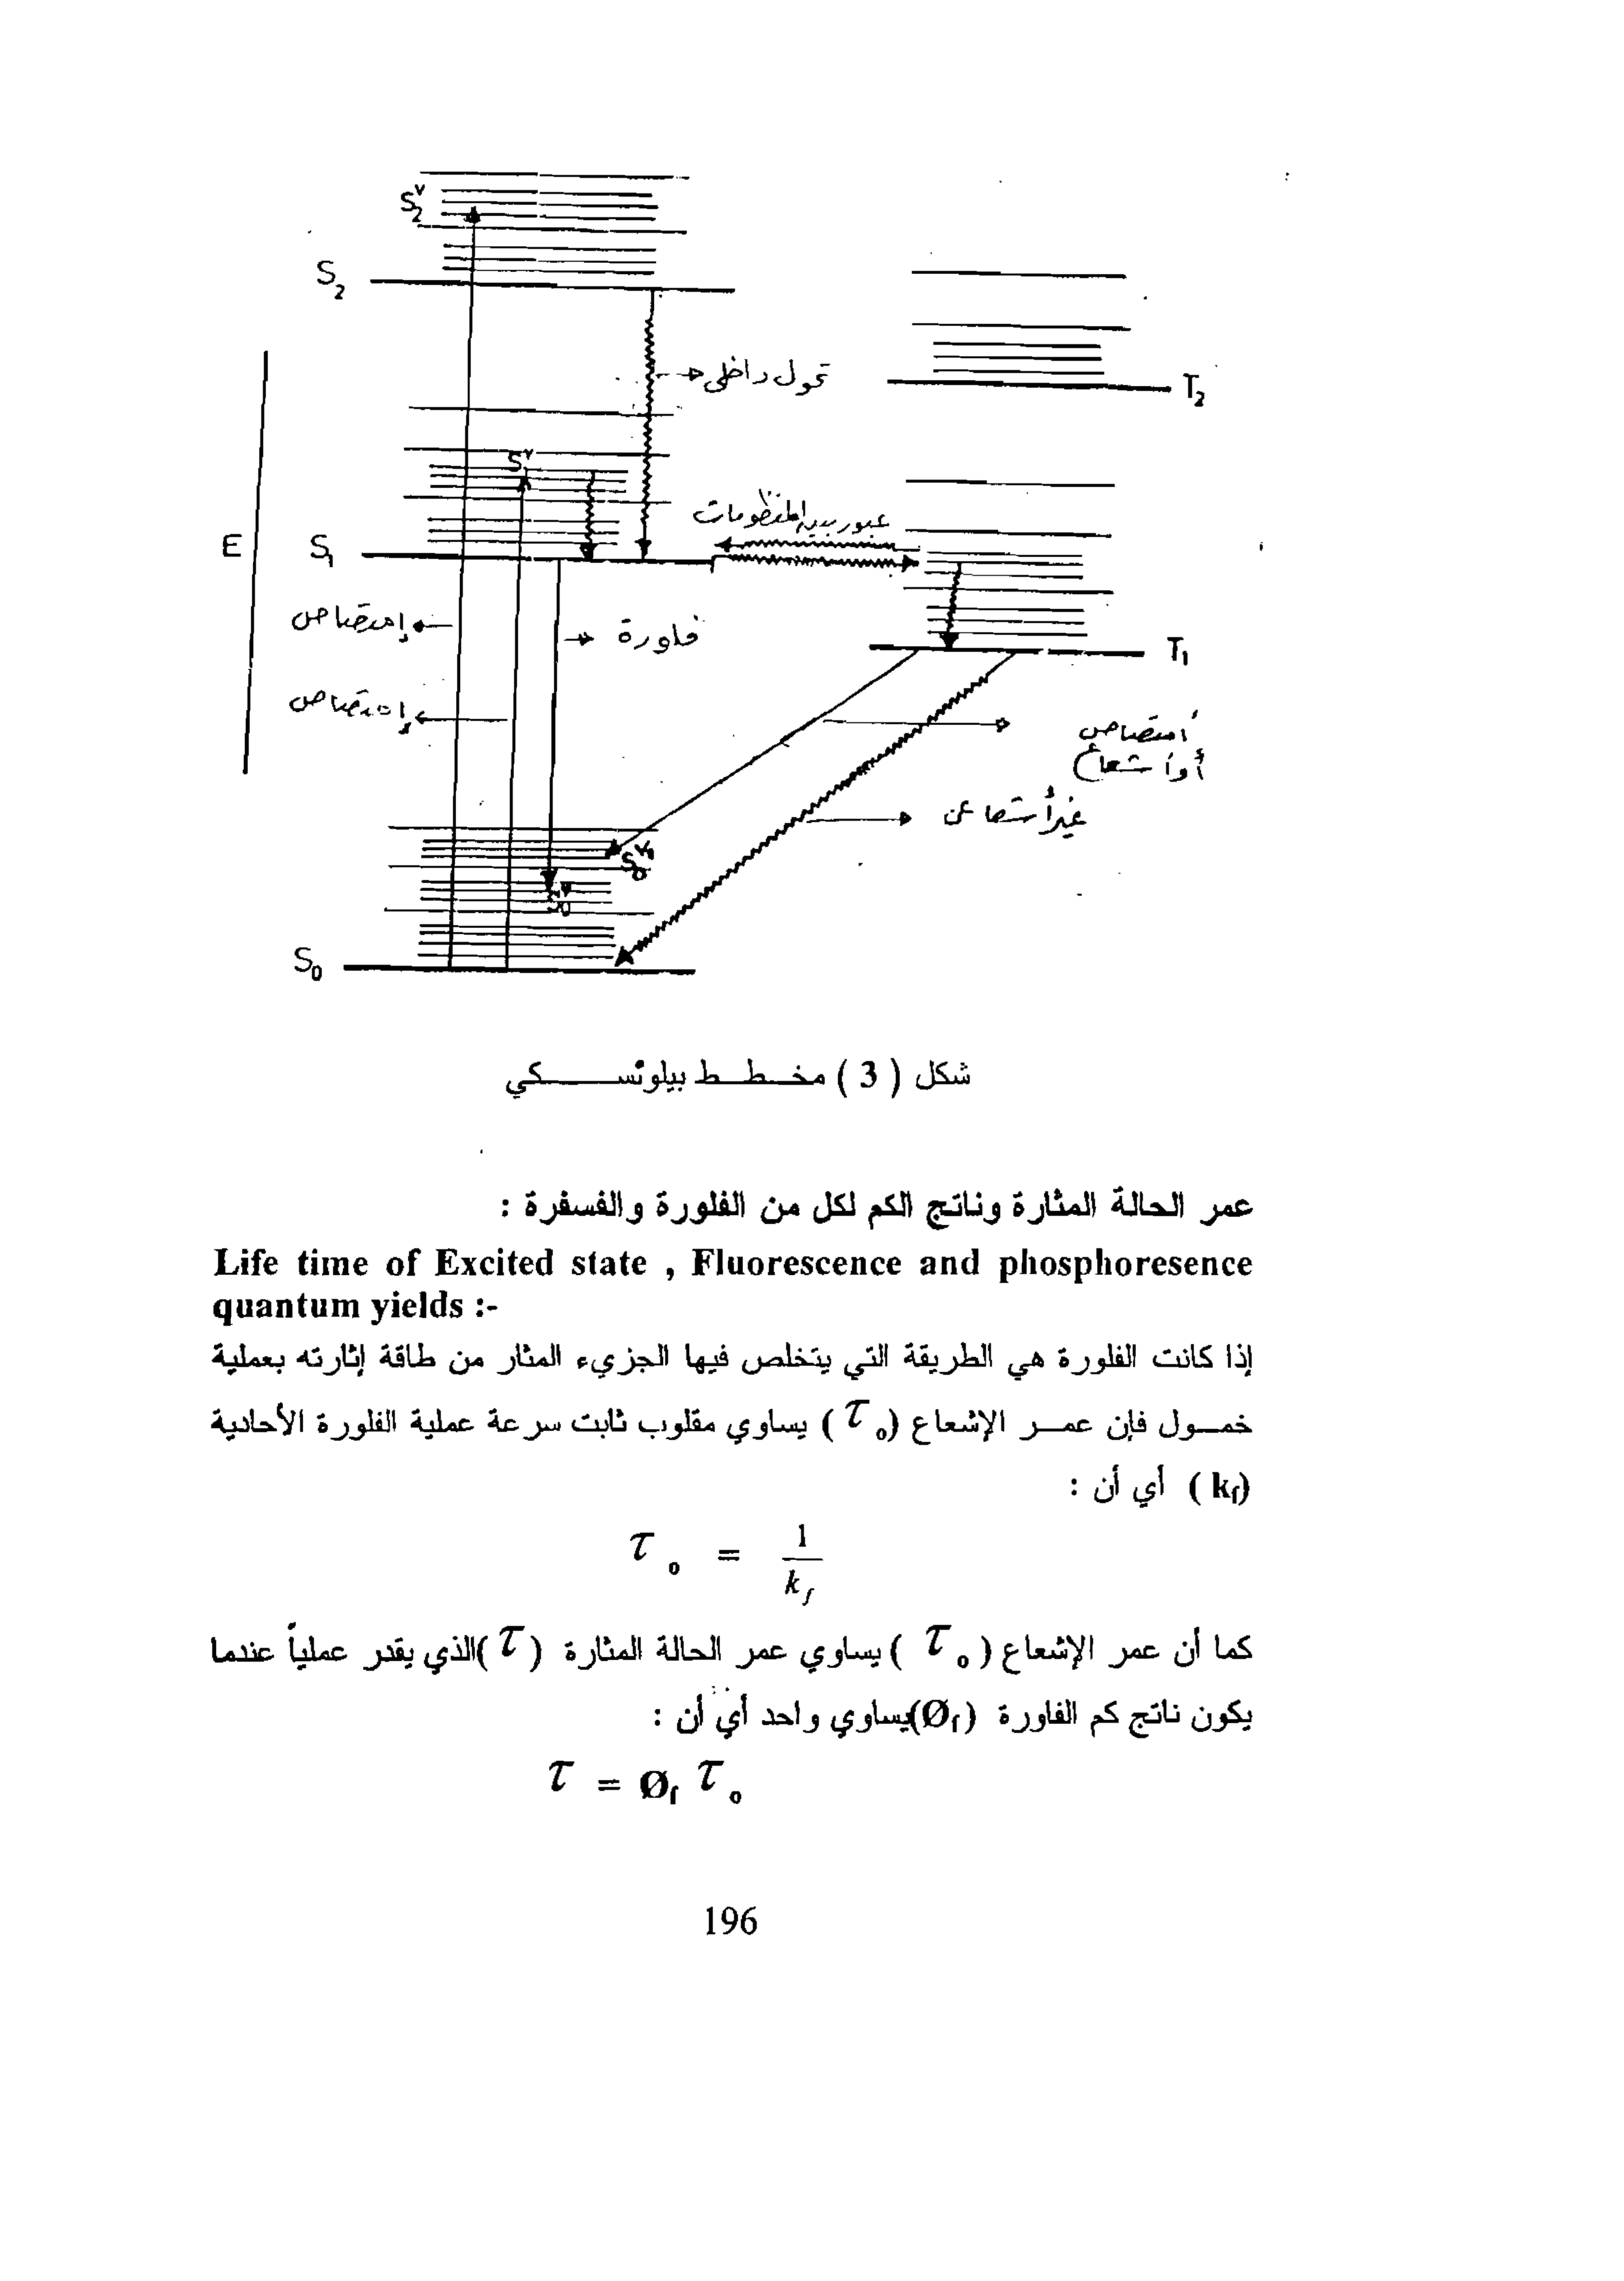 S₂ᵛ
S₂
تحول داخلي
T₂
Sᵛ
عبور بين المنظومات
E
S₁
إمتصاص
فلورة
T₁
إمتصاص
أمتصاص
أو أشعاع
غير أشعاعي
S₀
شكل ( 3 ) مخطط بيلونسكي
عمر الحالة المثارة وناتج الكم لكل من الفلورة والفسفرة :
Life time of Excited state , Fluorescence and phosphoresence
quantum yields :-
إذا كانت الفلورة هي الطريقة التي يتخلص فيها الجزيء المثار من طاقة إثارته بعملية
خمول فإن عمر الإشعاع (τ₀) يساوي مقلوب ثابت سرعة عملية الفلورة الأحادية
(kf) أي أن :
τ₀ = 1/kf
كما أن عمر الإشعاع (τ₀) يساوي عمر الحالة المثارة (τ) الذي يقدر عملياً عندما
يكون ناتج كم الفلورة (Øf) يساوي واحد أي أن :
τ = Øf τ₀
196